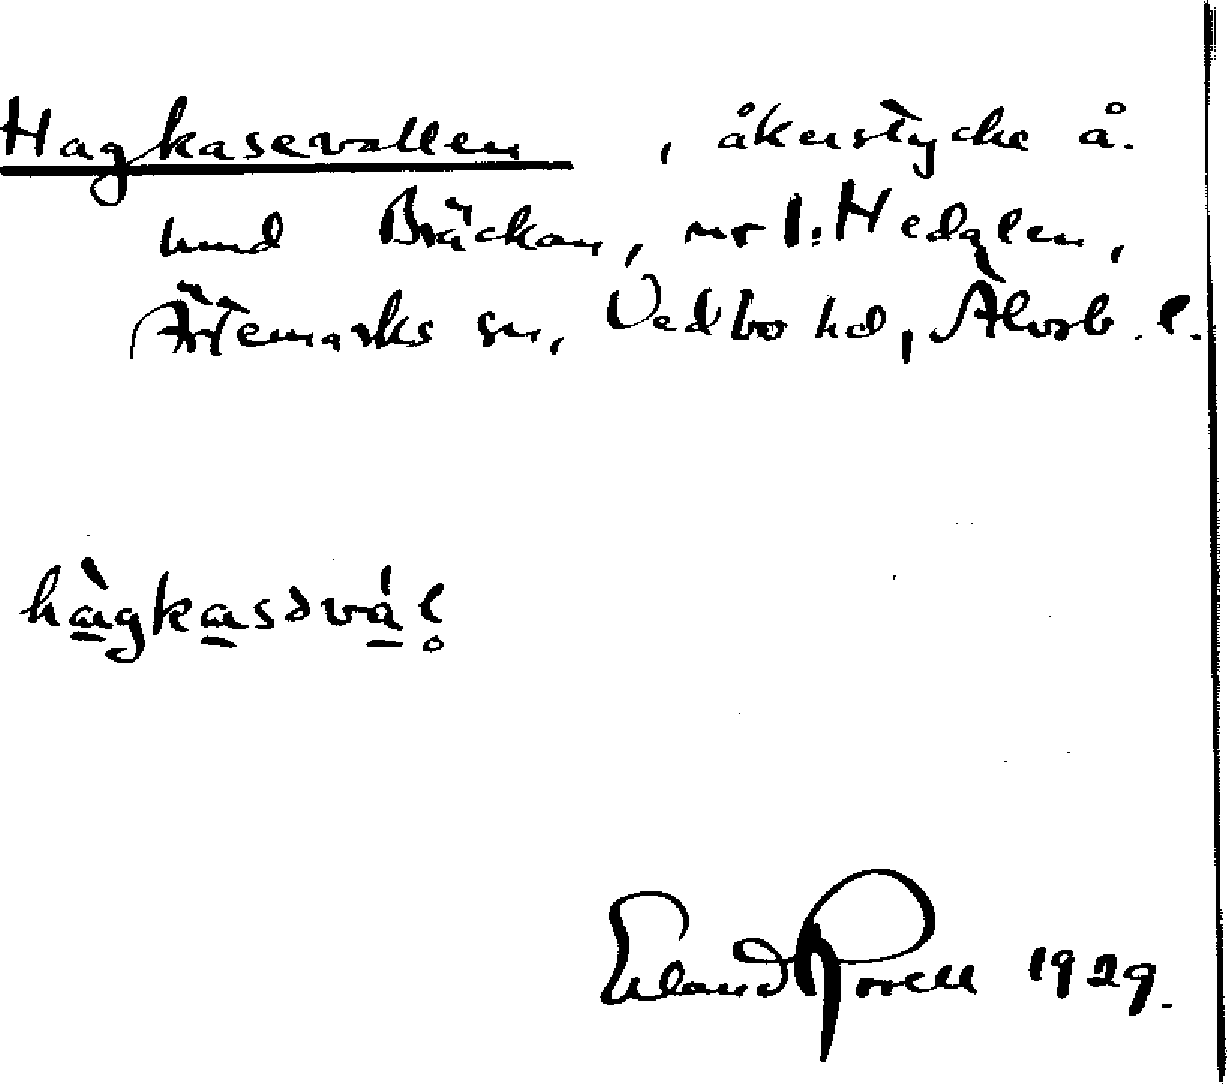 Hagkasevallen, åkerstycke å.
hmd Bräckan, nr 1. Hedalen,
Ärtemarks sn, Vedbo hd, Älvsb. l.
hàgkasəvál̥
Erland Rosell 1929.